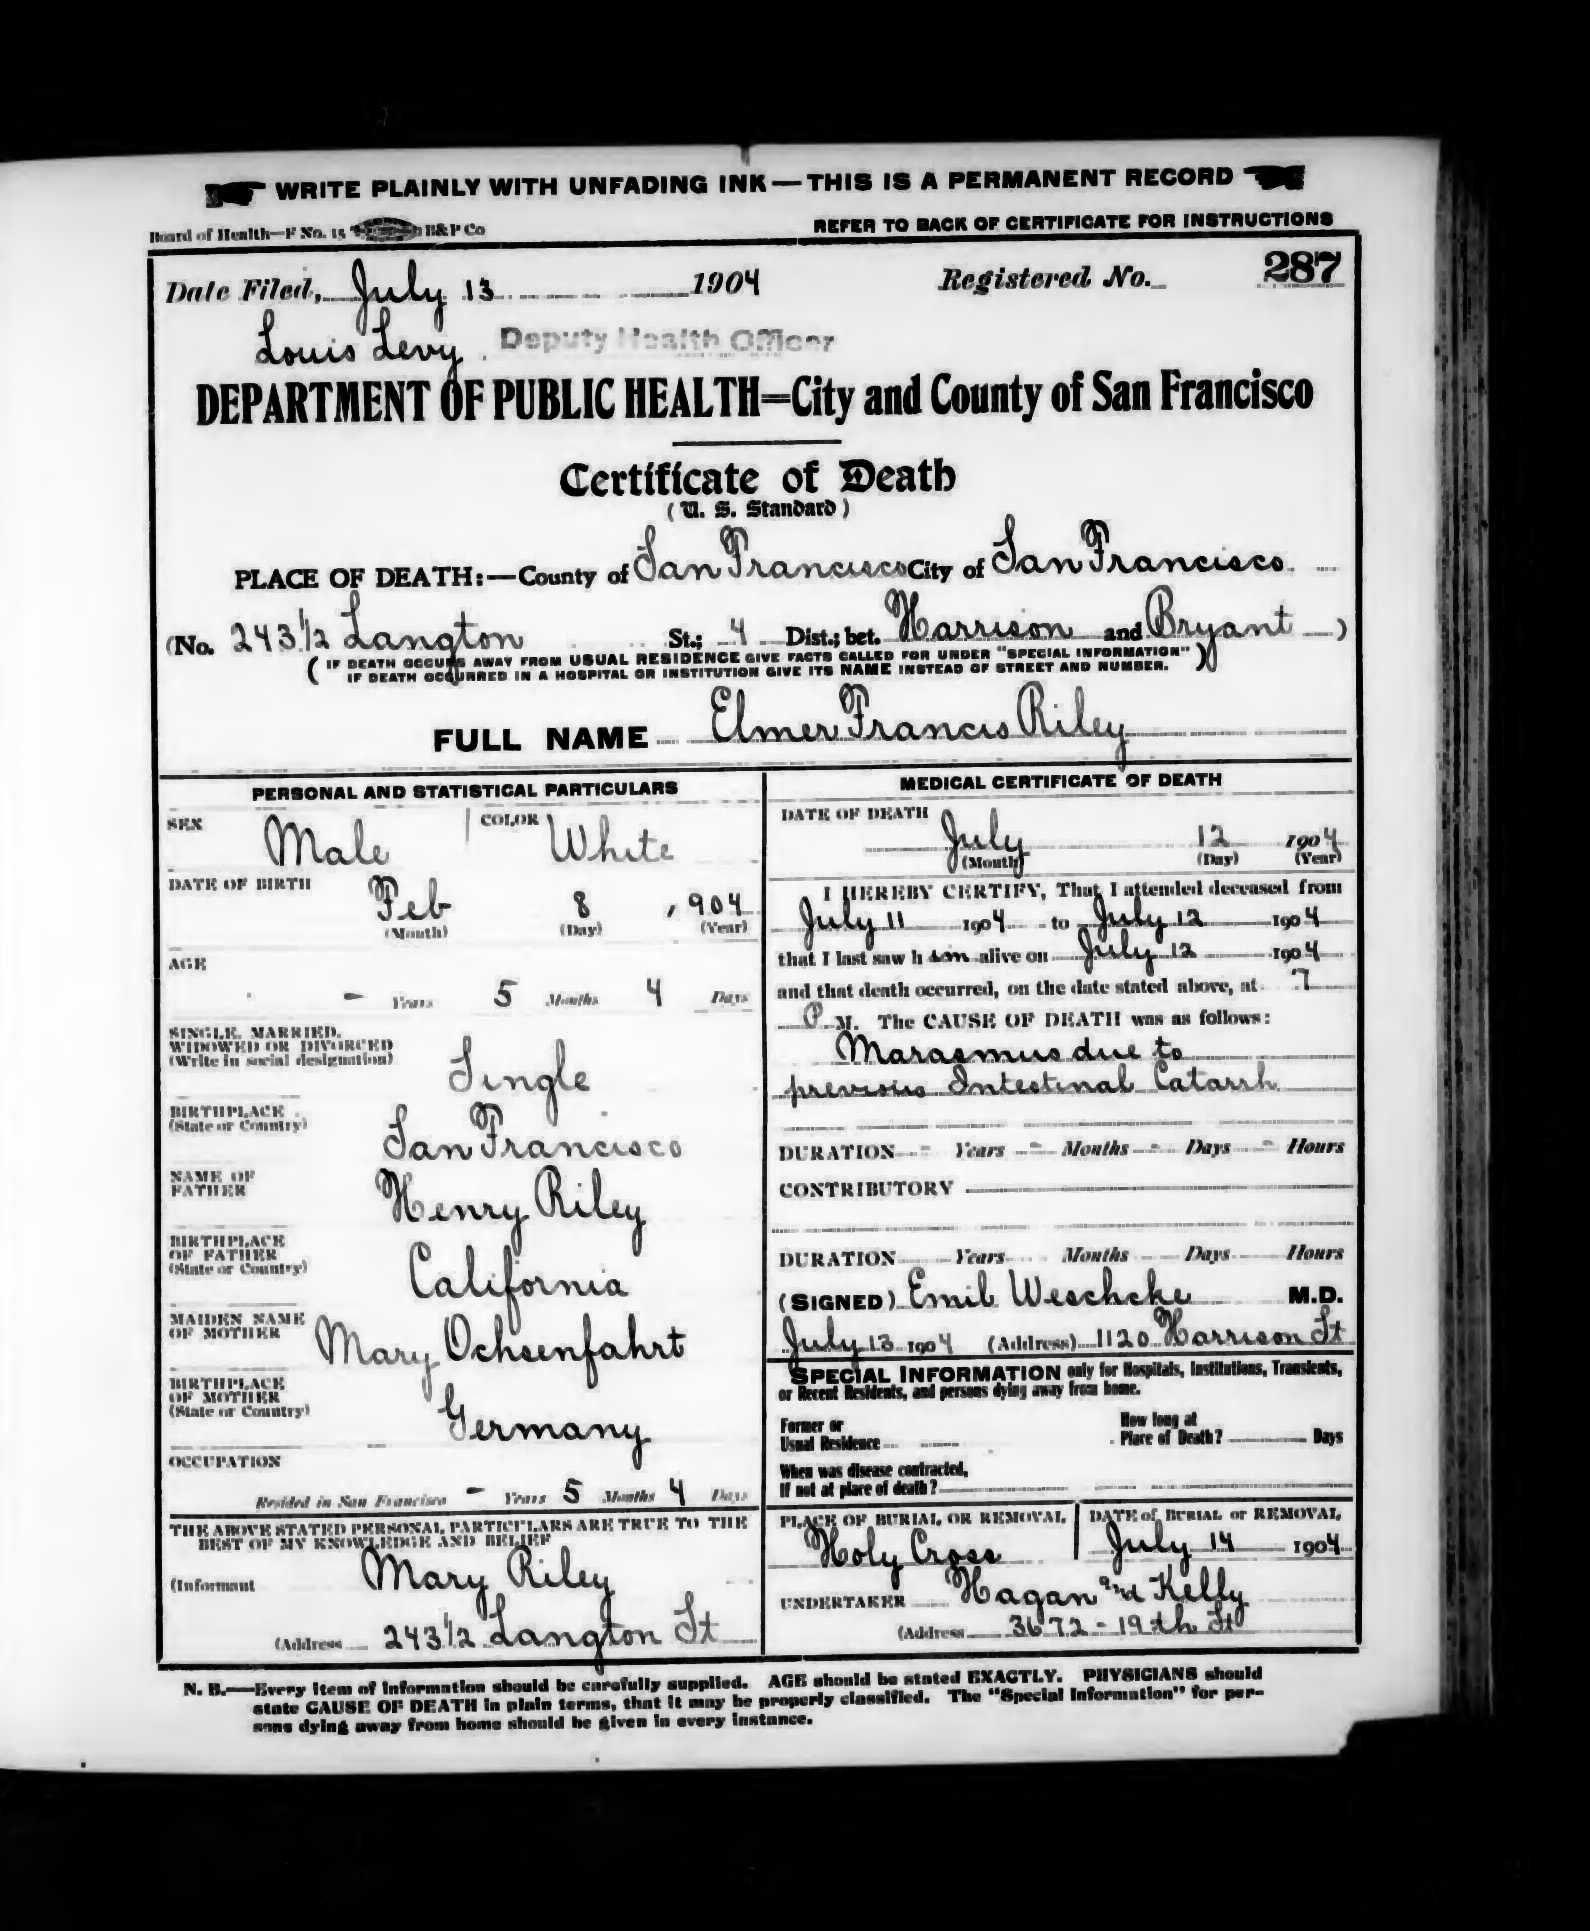 WRITE PLAINLY WITH UNFADING INK—THIS IS A PERMANENT RECORD
Board of Health—F No. 15 B&P Co
REFER TO BACK OF CERTIFICATE FOR INSTRUCTIONS
Date Filed, July 13 1904 Registered No. 287
Louis Levy Deputy Health Officer
DEPARTMENT OF PUBLIC HEALTH=City and County of San Francisco
Certificate of Death
(U. S. Standard)
PLACE OF DEATH:—County of San Francisco City of San Francisco
(No. 243 1/2 Langton St.; 4 Dist.; bet. Harrison and Bryant)
(IF DEATH OCCURS AWAY FROM USUAL RESIDENCE GIVE FACTS CALLED FOR UNDER "SPECIAL INFORMATION"
IF DEATH OCCURRED IN A HOSPITAL OR INSTITUTION GIVE ITS NAME INSTEAD OF STREET AND NUMBER.)
FULL NAME Elmer Francis Riley
PERSONAL AND STATISTICAL PARTICULARS
SEX Male COLOR White
DATE OF BIRTH
Feb 8 , 904
(Month) (Day) (Year)
AGE
- Years 5 Months 4 Days
SINGLE, MARRIED,
WIDOWED OR DIVORCED
(Write in social designation)
Single
BIRTHPLACE
(State or Country)
San Francisco
NAME OF
FATHER
Henry Riley
BIRTHPLACE
OF FATHER
(State or Country)
California
MAIDEN NAME
OF MOTHER
Mary Ochsenfahrt
BIRTHPLACE
OF MOTHER
(State or Country)
Germany
OCCUPATION
Resided in San Francisco - Years 5 Months 4 Days
THE ABOVE STATED PERSONAL PARTICULARS ARE TRUE TO THE
BEST OF MY KNOWLEDGE AND BELIEF
(Informant Mary Riley
(Address 243 1/2 Langton St
MEDICAL CERTIFICATE OF DEATH
DATE OF DEATH
July 12 1904
(Month) (Day) (Year)
I HEREBY CERTIFY, That I attended deceased from
July 11 1904 to July 12 1904
that I last saw h im alive on July 12 1904
and that death occurred, on the date stated above, at 7
P M. The CAUSE OF DEATH was as follows:
Marasmus due to
previous Intestinal Catarrh
DURATION - Years - Months - Days - Hours
CONTRIBUTORY
DURATION Years Months Days Hours
(SIGNED) Emil Weschcke M.D.
July 13 1904 (Address) 1120 Harrison St
SPECIAL INFORMATION only for Hospitals, Institutions, Transients,
or Recent Residents, and persons dying away from home.
Former or
Usual Residence
How long at
Place of Death? Days
When was disease contracted,
If not at place of death?
PLACE OF BURIAL OR REMOVAL
Holy Cross
DATE of BURIAL or REMOVAL
July 14 1904
UNDERTAKER Hagan and Kelly
(Address 3672 - 19th St
N. B.—Every item of information should be carefully supplied. AGE should be stated EXACTLY. PHYSICIANS should
state CAUSE OF DEATH in plain terms, that it may be properly classified. The "Special Information" for per-
sons dying away from home should be given in every instance.